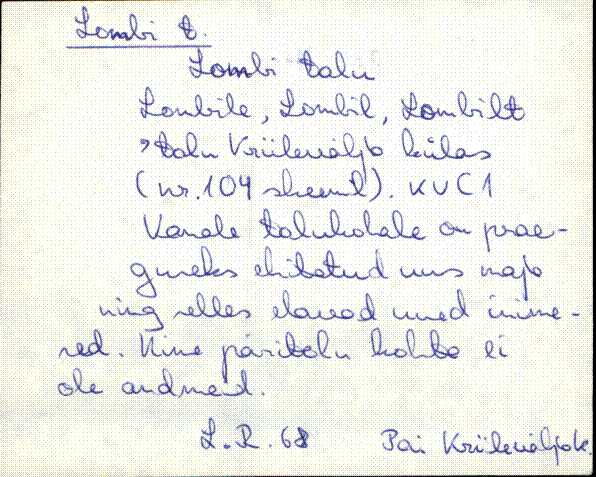 Lombi t.
Lombi talu
Lombile, Lombil, Lombilt
talu Kriilevälja külas
(nr. 104 skeemil). KVC1
Vanale talukohale on prae-
guseks ehitatud uus maja
ning selles elavad uued inime-
sed. Nime päritolu kohta ei
ole andmeid.
L.R. 68 Pai Kriilevälja k.